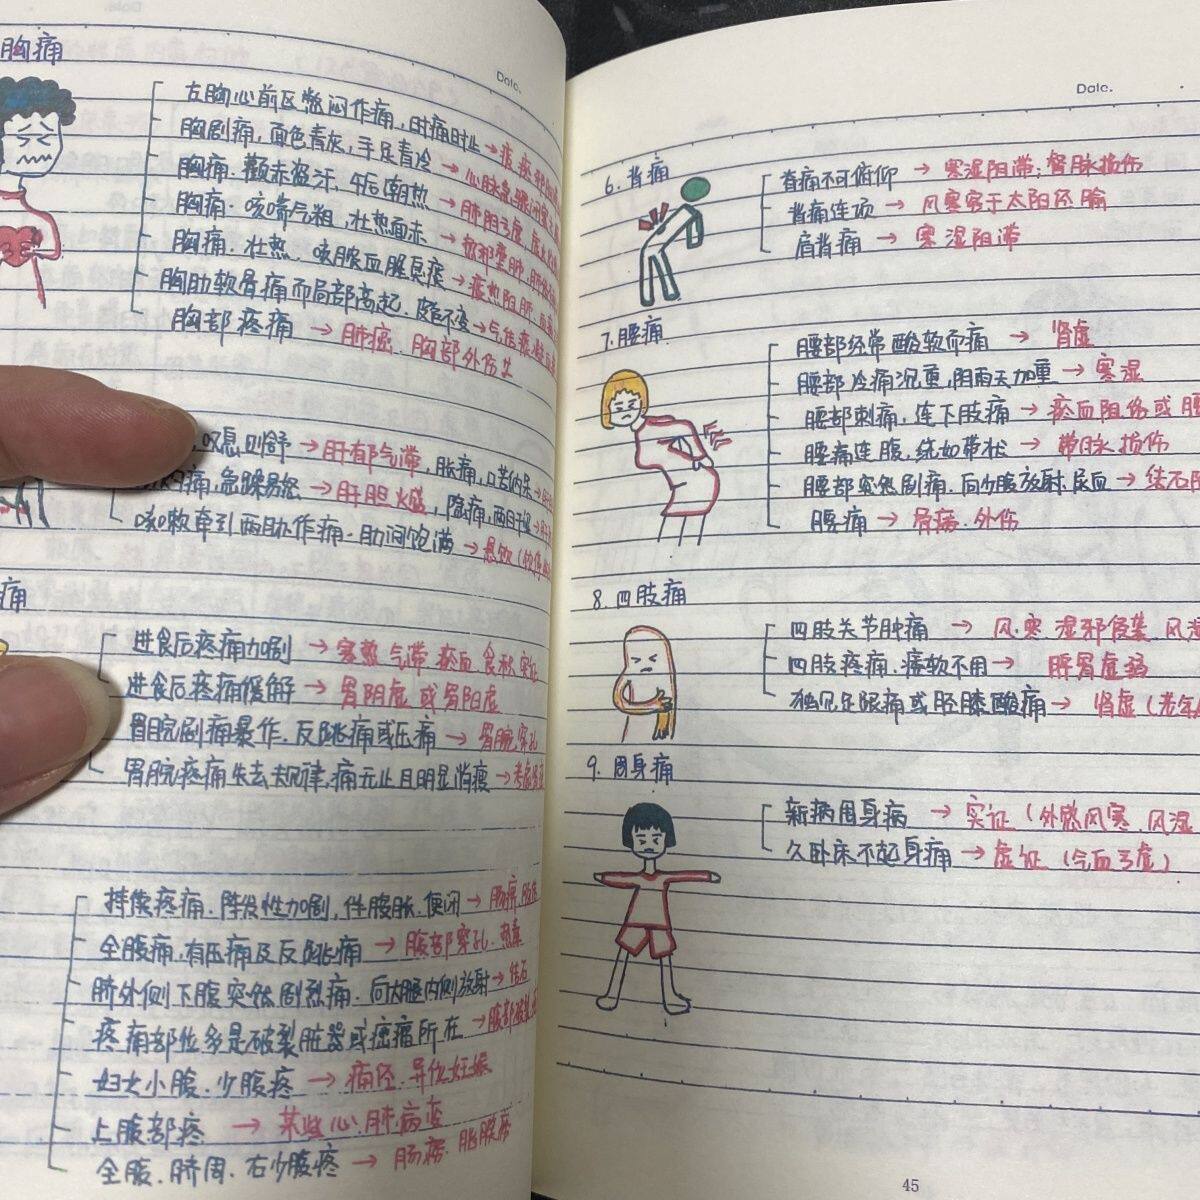 胸痛
Date.
左胸心前区憋闷作痛,时痛时止→痰瘀邪
胸剧痛,面色青灰,手足青冷→心脉急骤闭塞
胸痛.颧赤盗汗,午后潮热→肺阴亏虚,虚火
胸痛.咳喘气粗,壮热面赤→热邪壅肺,肺
胸痛.壮热.咳脓血腥臭痰→痰热阻肺,
胸肋软骨痛而局部高起.随不变→气结痰凝血
胸部疼痛→肺癌.胸部外伤
叹息则舒→肝郁气滞,胀痛,口苦纳呆→
痛,急躁易怒→肝胆火盛,隐痛,两目干涩→
咳嗽牵引两胁作痛.肋间饱满→悬饮(
痛
进食后疼痛加剧→寒热 气滞 瘀血 食积 实证
进食后疼痛缓解→胃阴虚或胃阳虚
胃脘剧痛暴作,反跳痛或压痛→胃脘穿孔
胃脘疼痛失去规律,痛无止且明显消瘦→考虑胃
持续疼痛.阵发性加剧,伴腹胀.便闭→肠痹
全腹痛,有压痛及反跳痛→腹部穿孔.热毒
脐外侧下腹突然剧烈痛.向大腿内侧放射→结石
疼痛部位多是破裂脏器或癌瘤所在→腹部破裂
妇女小腹.少腹疼→痛经.异位妊娠
上腹部疼→某些心.肺病变
全腹.脐周.右少腹疼→肠痨.胎
Date.
6.背痛
脊痛不可俯仰→寒湿阻滞;督脉损伤
背痛连项→风寒客于太阳经腧
肩背痛→寒湿阻滞
7.腰痛
腰部经常酸软而痛→肾虚
腰部冷痛沉重,阴雨天加重→寒湿
腰部刺痛,连下肢痛→瘀血阻络或腰
腰痛连腹,绕如带状→带脉损伤
腰部突然剧痛.向少腹放射.尿血→结石阻
腰痛→骨痨.外伤
8.四肢痛
四肢关节肿痛→风.寒 湿邪侵袭 风湿
四肢疼痛.痿软不用→脾胃虚弱
独见足跟痛或胫膝酸痛→肾虚(老年
9.周身痛
新病周身痛→实证(外感风寒.风湿
久卧床不起身痛→虚证(气血亏虚)
45